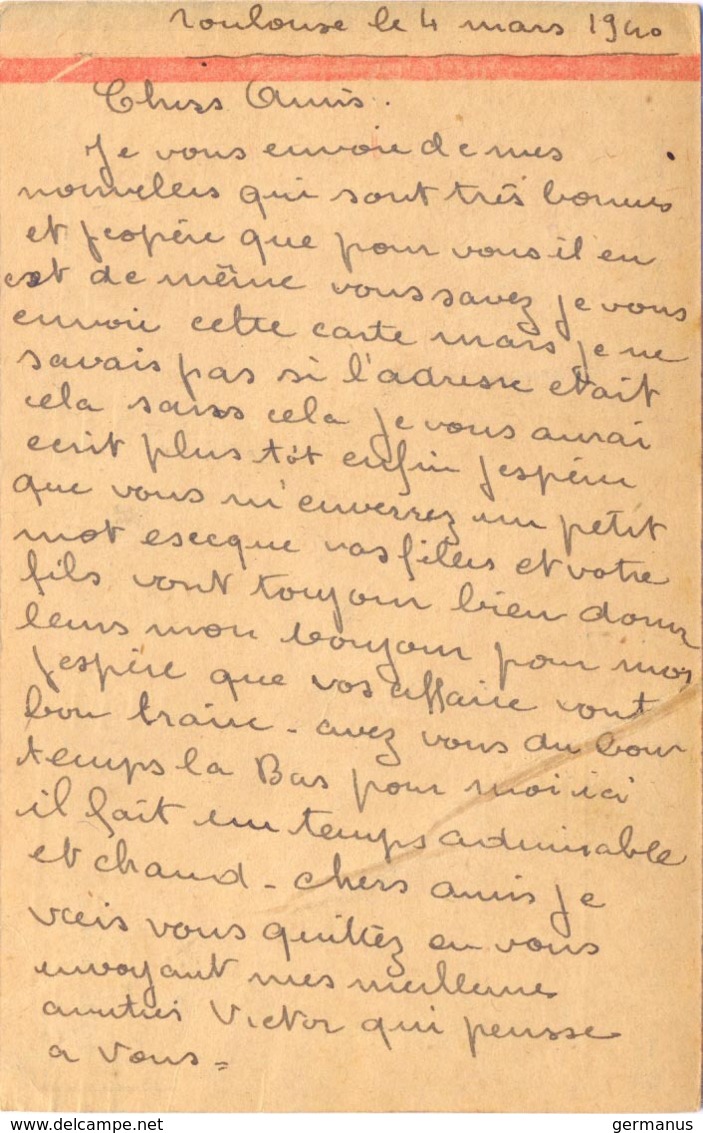 Toulouse le 4 mars 1940
Chers Amis.
Je vous envoie de mes
nouvelles qui sont très bonnes
et jespère que pour vous il en
est de même vous savez je vous
envoie cette carte mais je ne
savais pas si l'adresse etait
cela sans cela je vous aurai
ecrit plus tôt enfin jespère
que vous m'enverrez un petit
mot esecque vos filles et votre
fils vont toujour bien donnz
leurs mon bonjour pour moi
jespère que vos affaire vont
bon traine - avez vous du bon
temps la Bas pour moi ici
il fait un temps admirable
et chaud - chers amis je
vais vous quittez en vous
envoyant mes meilleure
amitiés Victor qui pensse
a vous =
germanus